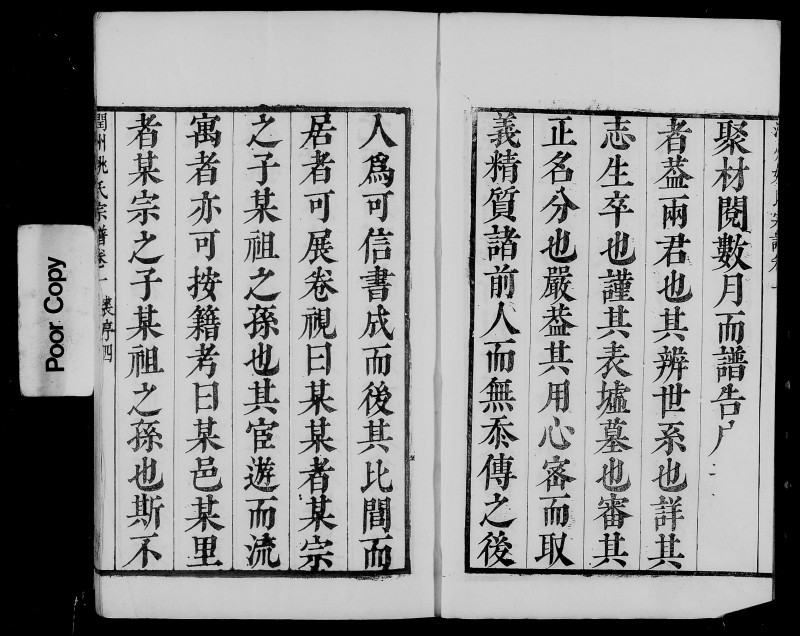 聚材閱數月而譜告
者葢兩君也其辨世系也詳其
志生卒也謹其表墟墓也審其
正名分也嚴葢其用心審而取
義精質諸前人而無忝傳之後
人爲可信書成而後其比閭而
居者可展卷視曰某某者某宗
之子某祖之孫也其宦遊而流
寓者亦可按籍考曰某邑某里
者某宗之子某祖之孫也斯不
潤州姚氏宗譜卷一 裴序四
Poor Copy